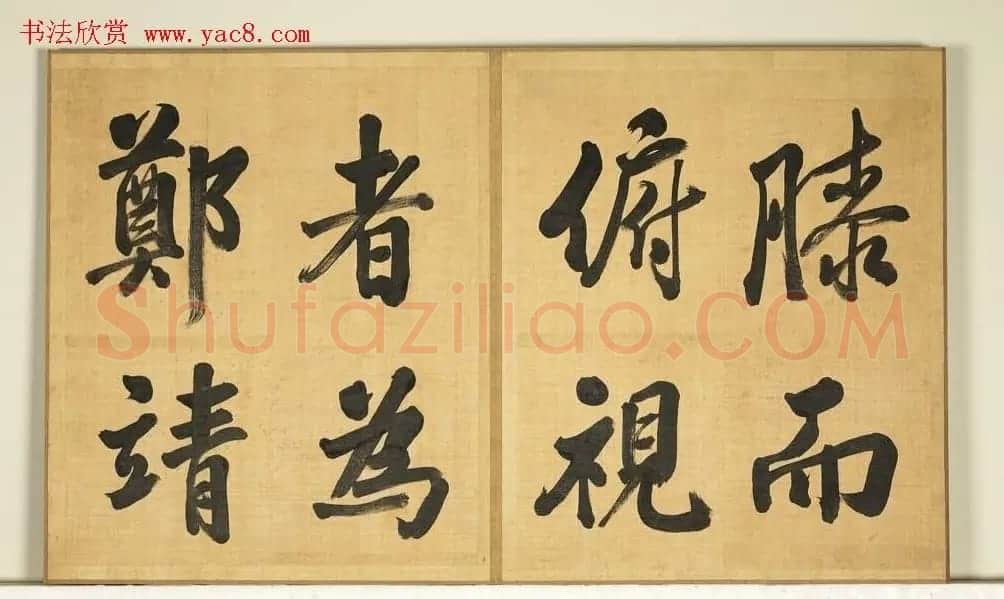 书法欣赏 www.yac8.com
膝而
俯視
者為
鄭靖
Shufaziliao.COM